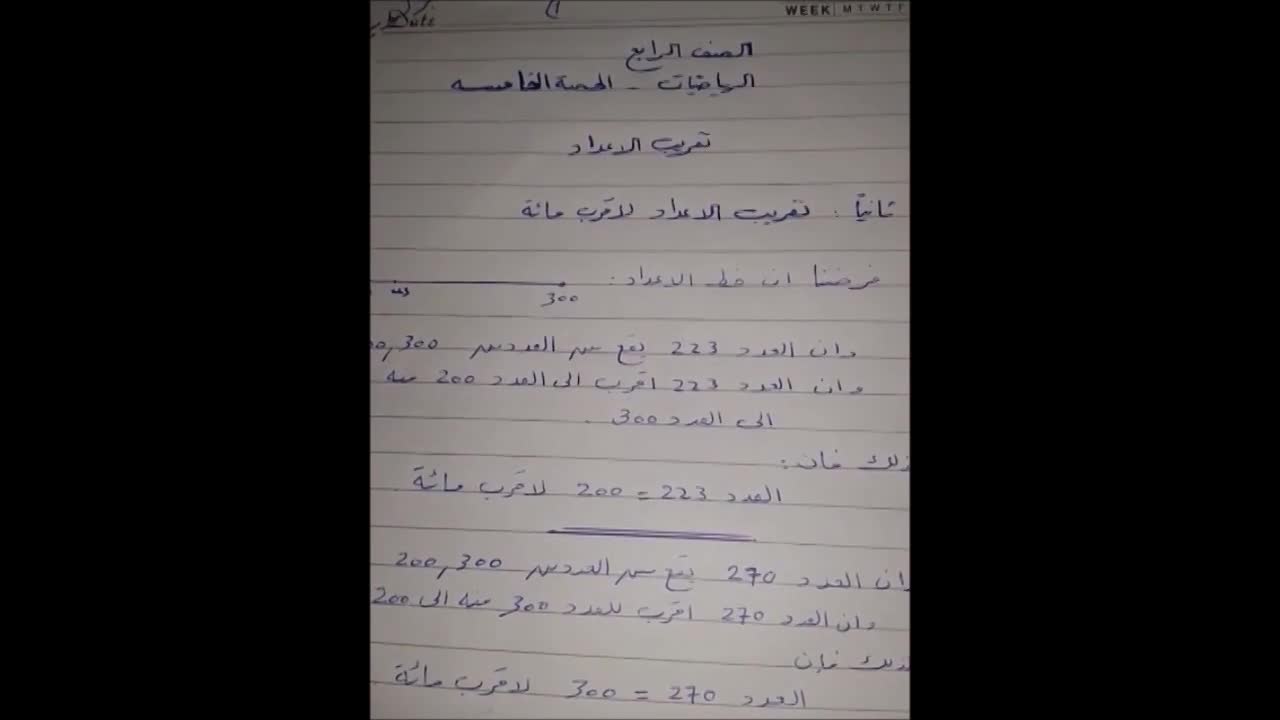 Date WEEK M T W T F
الصف الرابع
الرياضيات - الحصة الخامسه
تقريب الاعداد
ثانياً : تقريب الاعداد لاقرب مائة
فرضنا ان خط الاعداد :
300
وان العدد 223 يقع بين العددين 300,
وان العدد 223 اقرب الى العدد 200 منه
الى العدد 300 .
لذلك فان :
العدد 223 = 200 لاقرب مائة
وان العدد 270 يقع بين العددين 300 , 200
وان العدد 270 اقرب للعدد 300 منه الى 200
لذلك فإن
العدد 270 = 300 لاقرب مائة